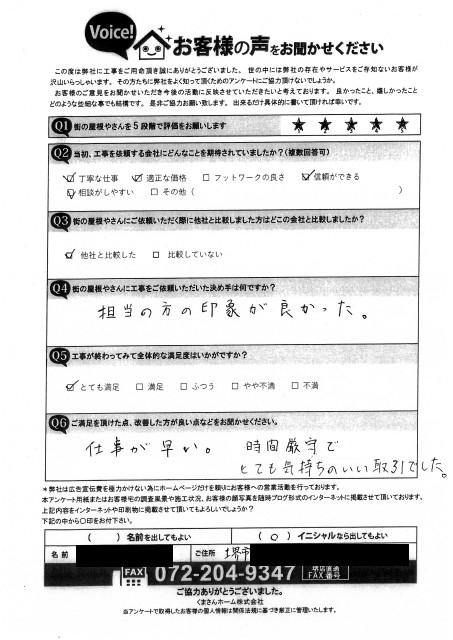 Voice!
お客様の声をお聞かせください
この度は弊社に工事をご用命頂き誠にありがとうございました。世の中には弊社の存在やサービスをご存知ないお客様が
沢山いらっしゃいます。その方たちに弊社をよく知って頂くためのアンケートにご協力頂けないでしょうか。
お客様のご意見をお聞かせいただき今後の活動に反映させていただきたいと考えております。良かったこと、嬉しかったこと
どのような些細な事でも結構です。是非ご協力お願い致します。出来るだけ具体的に書いて頂ければ幸いです。
Q1 街の屋根やさんを5段階で評価をお願いします ★ ★ ★ ★ ★
Q2 当初、工事を依頼する会社にどんなことを期待されていましたか?(複数回答可)
☑ 丁寧な仕事 ☑ 適正な価格 □ フットワークの良さ ☑ 信頼ができる
☑ 相談がしやすい □ その他 ( )
Q3 街の屋根やさんにご依頼いただく際に他社と比較しました方はどこの会社と比較しましたか?
☑ 他社と比較した □ 比較していない
Q4 街の屋根やさんに工事をご依頼いただいた決め手は何ですか?
担当の方の印象が良かった。
Q5 工事が終わってみて全体的な満足度はいかがですか?
☑ とても満足 □ 満足 □ ふつう □ やや不満 □ 不満
Q6 ご満足を頂けた点、改善した方が良い点などをお聞かせください。
仕事が早い。 時間厳守で
とても気持ちのいい取引でした。
*弊社は広告宣伝費を極力かけない為にホームページだけを頼りにお客様への営業活動を行っております。
本アンケート用紙またはお客様宅の調査風景や施工状況、お客様の顔写真を随時ブログ形式のインターネットに掲載させて頂いております。
上記内容をインターネットや印刷物に掲載させて頂いてもよろしいでしょうか?
下記の中から〇印をお付下さい。
( ) 名前を出してもよい ( ○ ) イニシャルなら出してもよい
名前 ご住所 堺市
FAX 072-204-9347 堺店直通 FAX番号
ご協力ありがとうございました。
くまさんホーム株式会社
当アンケートで取得したお客様の個人情報は関係法規に基づき厳正に管理いたします。